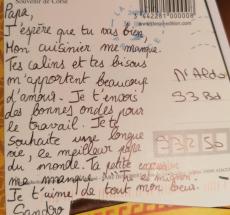 Souvenir de Corse
5 442281 000008
Papa,
J'espère que tu vas bien,
Mon cuisinier me manque.
Tes calins et tes bisous
m'apportent beaucoup
d'amour. Je t'envois
des bonnes ondes pour
le travail. Je te
souhaite une longue
vie, le meilleur père
du monde. Ta petite
me manque
mignon.
Je t'aime de tout mon cœur.
Sandro